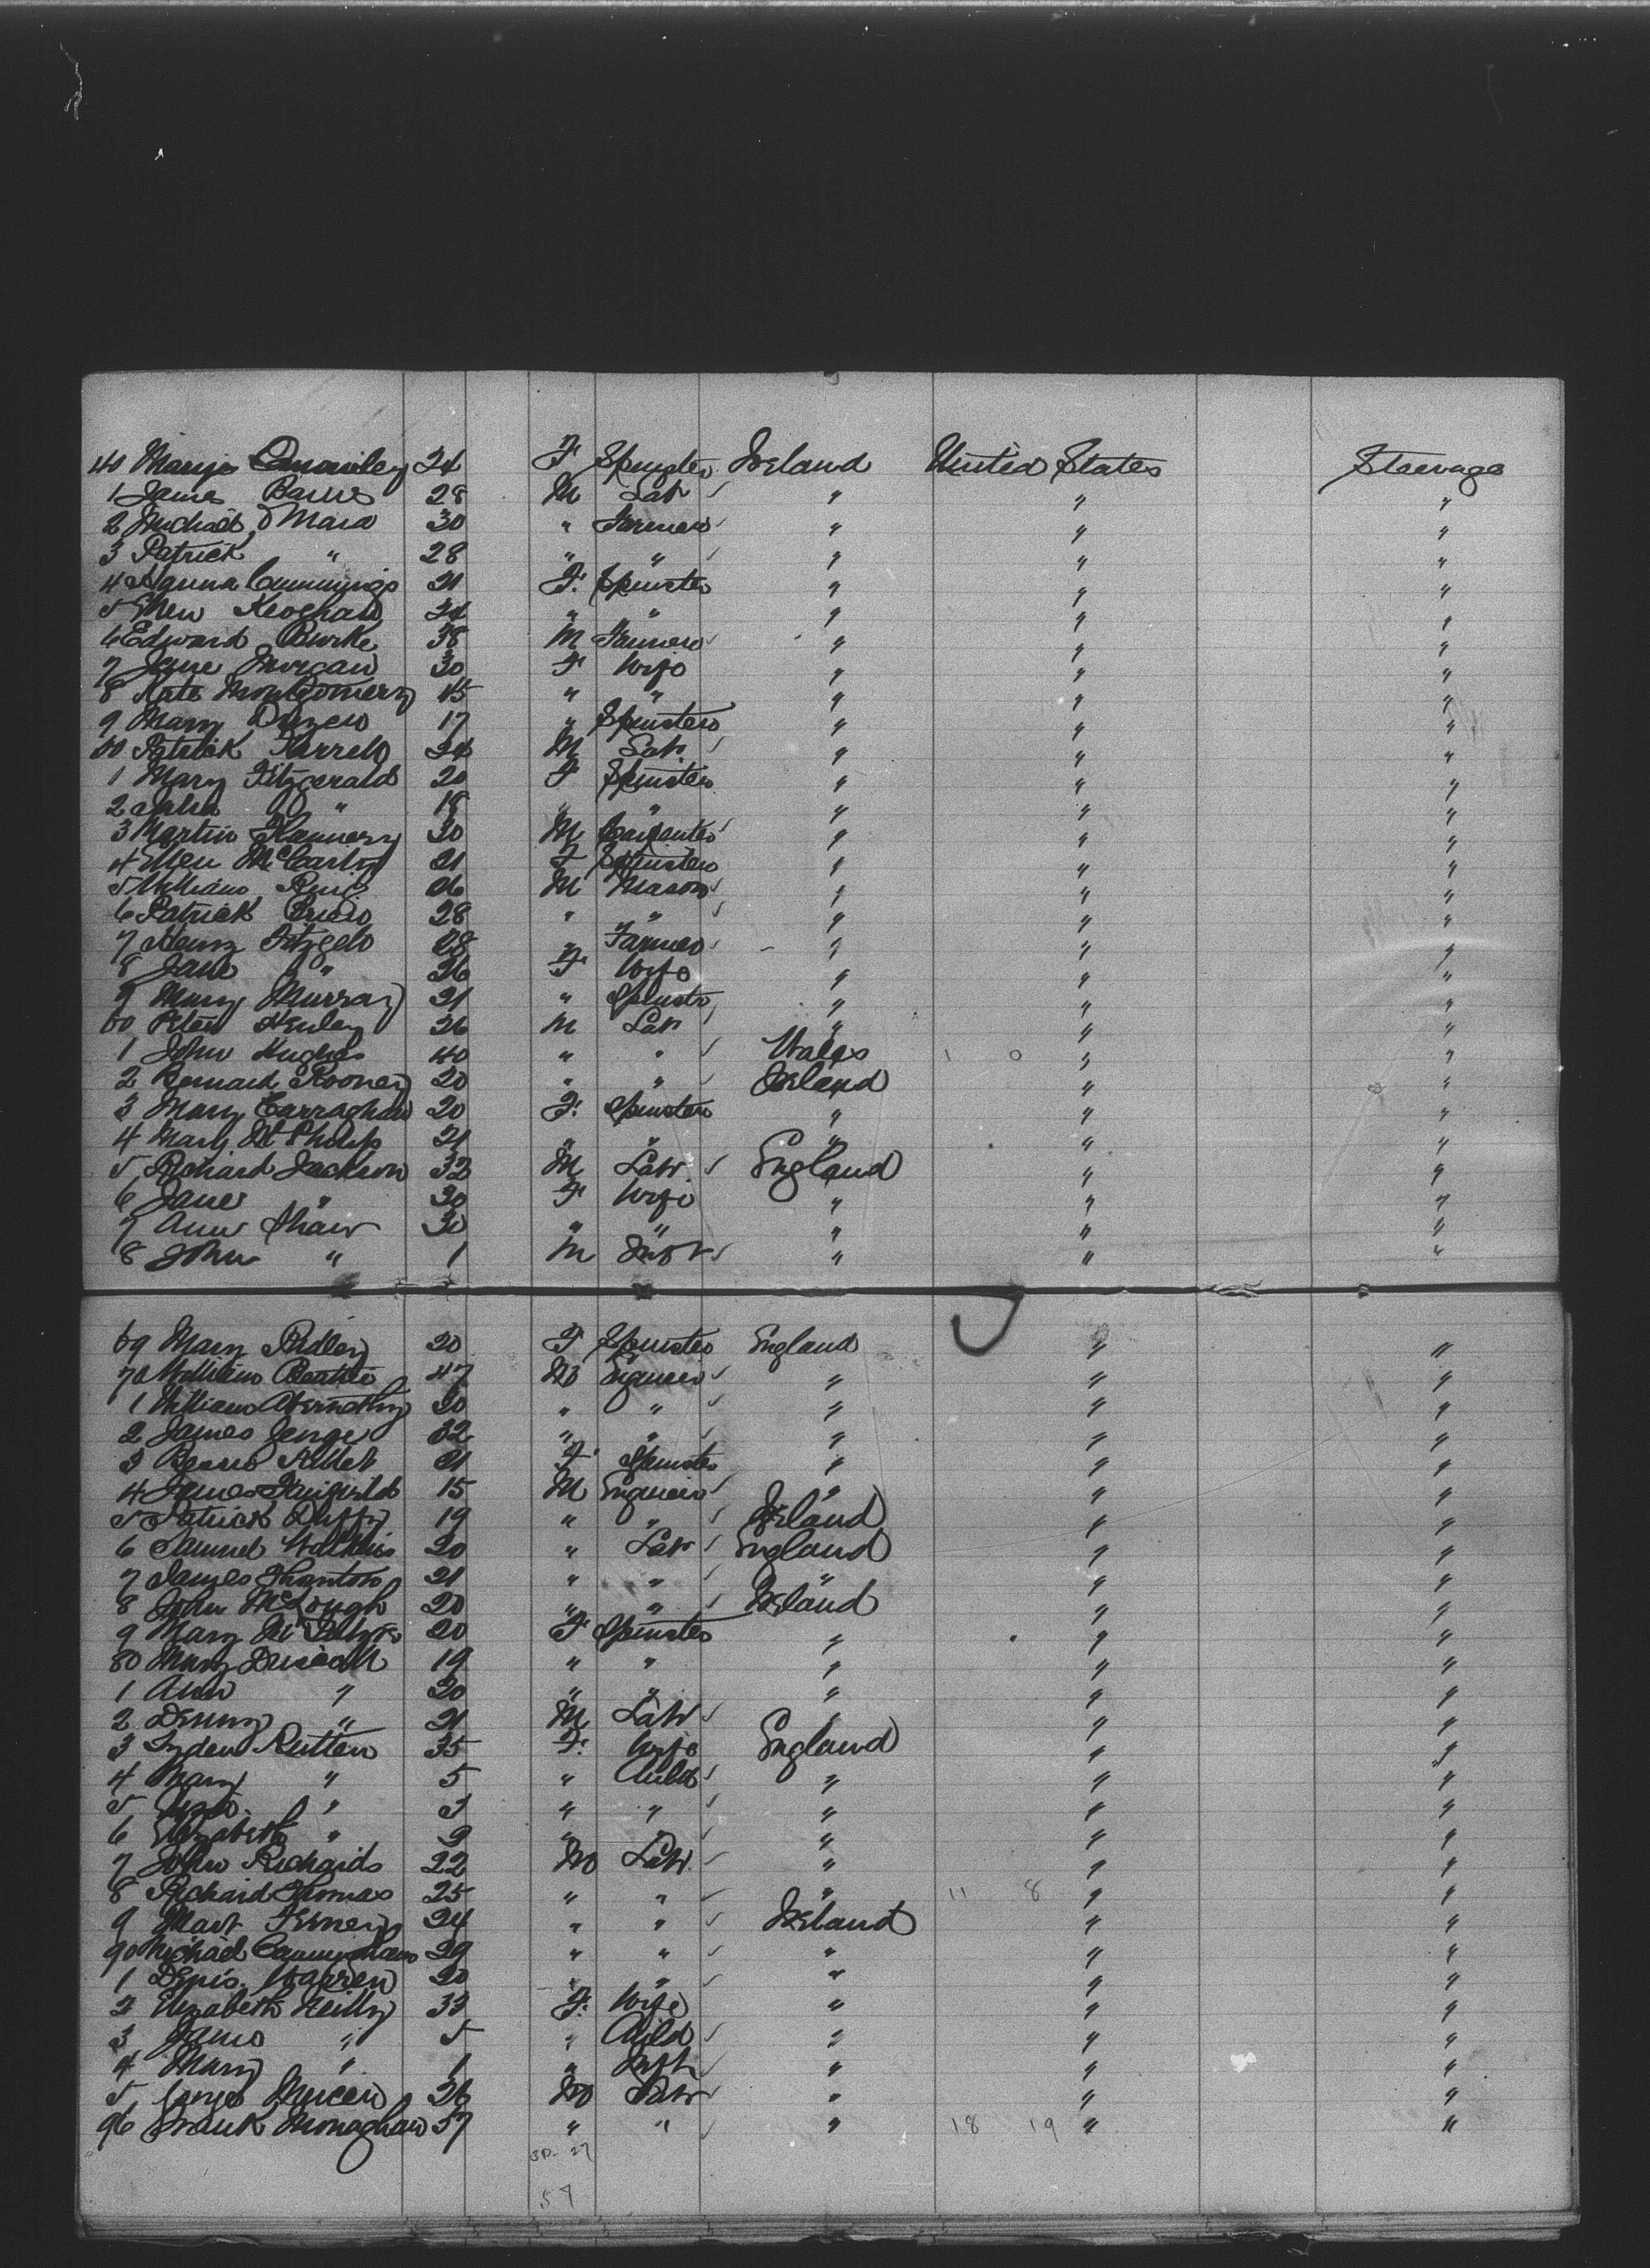 40 24 F Spinster Ireland United States Steerage
1 James Barnes 28 M Labr " " "
2 Michael O'Mara 30 " Farmer " " "
3 Patrick " 28 " " " " "
4 Hanna Cummings 21 F. Spinster " " "
5 Ellen 24 " " " " "
6 Edward Burke 38 M Farmer " " "
7 Jane Morgan 30 F Wife " " "
8 Kate Montgomery 45 " " " " "
9 Mary 17 " Spinster " " "
50 Patrick Farrell 24 M Labr " " "
1 Mary Fitzgerald 20 F Spinster " " "
2 Julia " 18 " " " " "
3 Martin Flannery 30 M Carpenter " " "
4 Ellen McCarthy 21 F Spinster " " "
5 William 26 M Mason " " "
6 Patrick 28 " " " " "
7 Henry 28 " Farmer " " "
8 Jane " 26 F Wife " " "
9 Mary Murray 21 " Spinstr " " "
60 Peter Henley 26 M Labr " " "
1 John Hughes 40 " " Wales 1 0 " "
2 Bernard Rooney 20 " " Ireland " "
3 Mary 20 F. Spinster " " "
4 Mary 21 " " " " "
5 Richard Jackson 32 M Labr England " "
6 Jane " 30 F Wife " " "
7 Ann Shaw 30 " " " " "
8 John " 1 M Inft " " "
69 Mary Ridley 20 F Spinster England " "
70 William 47 M Engineer " " "
1 William Abernethy 20 " " " " "
2 James 32 " " " " "
3 21 F Spinster " " "
4 James 15 M Engineer " " "
5 Patrick Duffy 19 " " Ireland " "
6 Samuel Watkins 20 " Labr England " "
7 James 21 " " " " "
8 John 20 " " Ireland " "
9 Mary 20 F Spinster " " "
80 Mary Driscoll 19 " " " " "
1 Ann " 20 " " " " "
2 Denny " 21 M Labr " " "
3 Rutten 35 F. Wife England " "
4 Mary " 5 " Child " " "
5 " 3 " " " " "
6 Elizabeth " 9 " " " " "
7 John Richards 22 M Labr " " "
8 Richard Thomas 25 " " " 11 8 " "
9 24 " " Ireland " "
90 Michael Cunningham 29 " " " " "
1 Denis Warren 20 " " " " "
2 Elizabeth Reilly 33 F. Wife " " "
3 James " 5 " Child " " "
4 Mary " 1 " Inft " " "
5 26 M Labr " " "
96 Frank Monaghan 57 " " " 18 19 " "
27
57